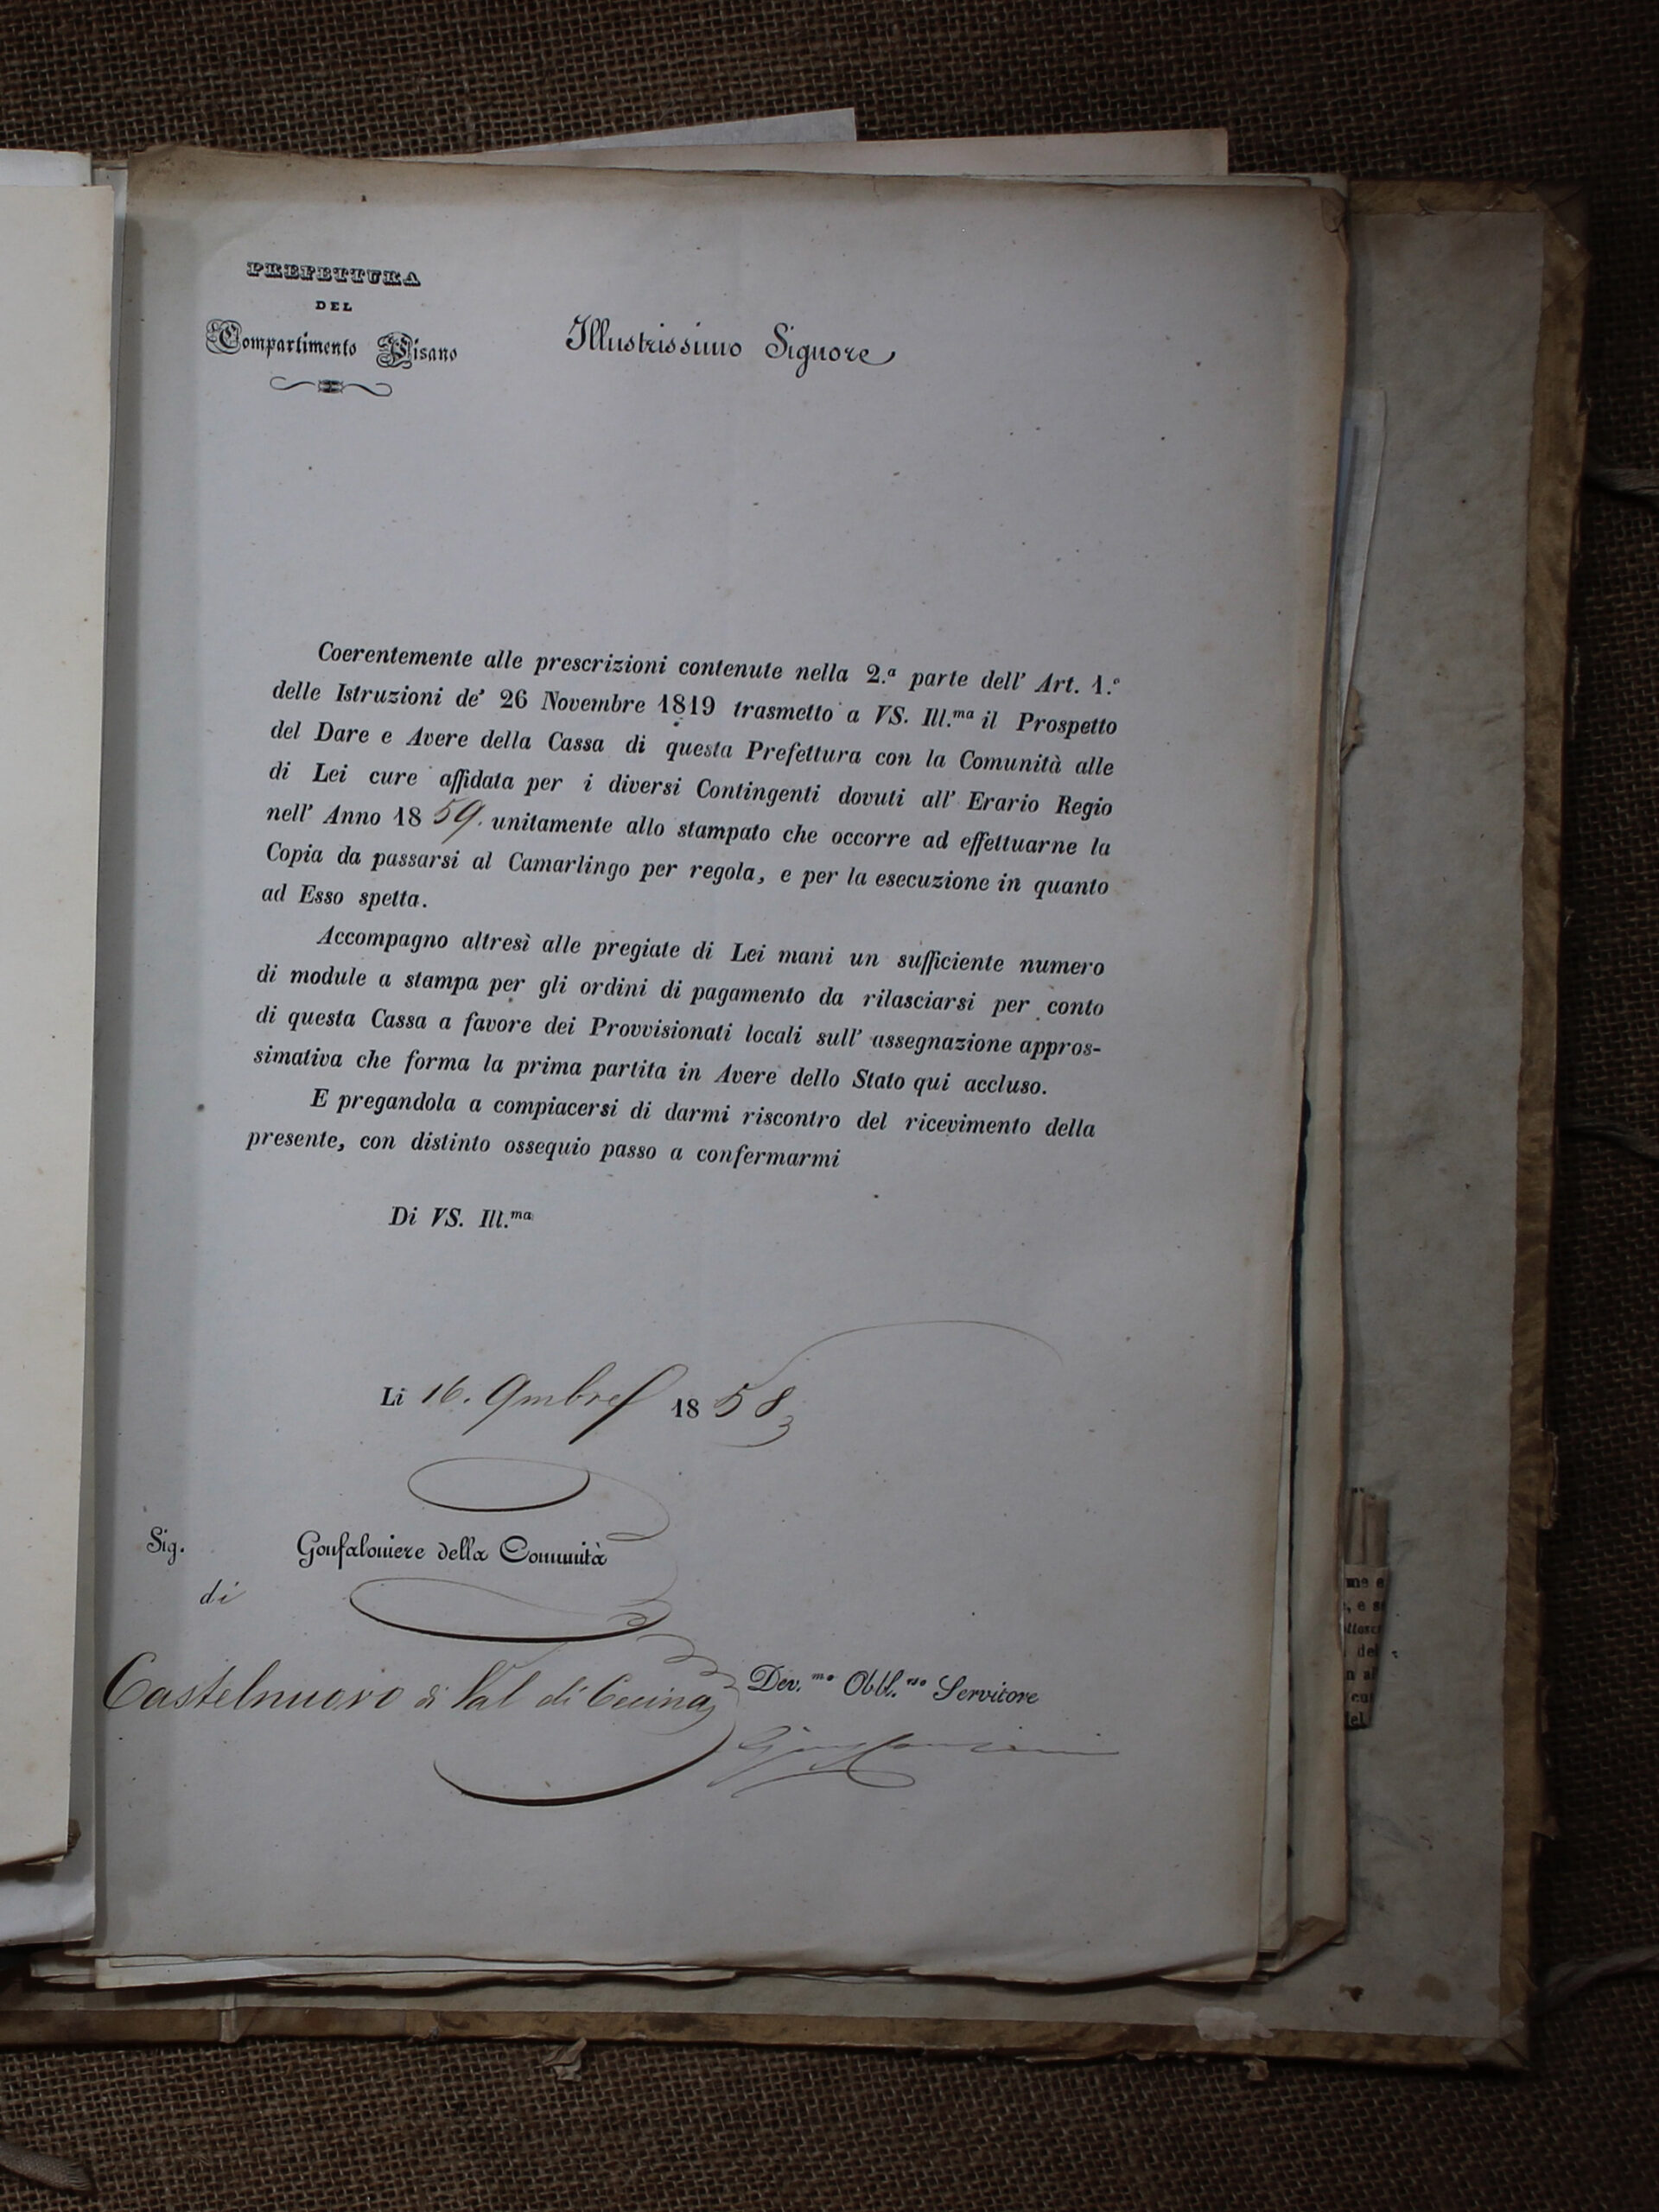 PREFETTURA
DEL
Compartimento Pisano
Illustrissimo Signore
Coerentemente alle prescrizioni contenute nella 2.ª parte dell' Art. 1.º
delle Istruzioni de' 26 Novembre 1819 trasmetto a VS. Ill.ma il Prospetto
del Dare e Avere della Cassa di questa Prefettura con la Comunità alle
di Lei cure affidata per i diversi Contingenti dovuti all' Erario Regio
nell' Anno 1859. unitamente allo stampato che occorre ad effettuarne la
Copia da passarsi al Camarlingo per regola, e per la esecuzione in quanto
ad Esso spetta.
Accompagno altresì alle pregiate di Lei mani un sufficiente numero
di module a stampa per gli ordini di pagamento da rilasciarsi per conto
di questa Cassa a favore dei Provvisionati locali sull' assegnazione appros-
simativa che forma la prima partita in Avere dello Stato qui accluso.
E pregandola a compiacersi di darmi riscontro del ricevimento della
presente, con distinto ossequio passo a confermarmi
Di VS. Ill.ma
Li 16. 9mbre 1858
Sig. Gonfaloniere della Comunità
di
Castelnuovo di Val di Cecina
Dev.mo Obbl.mo Servitore
me e
, e s
del
n al
cui
del